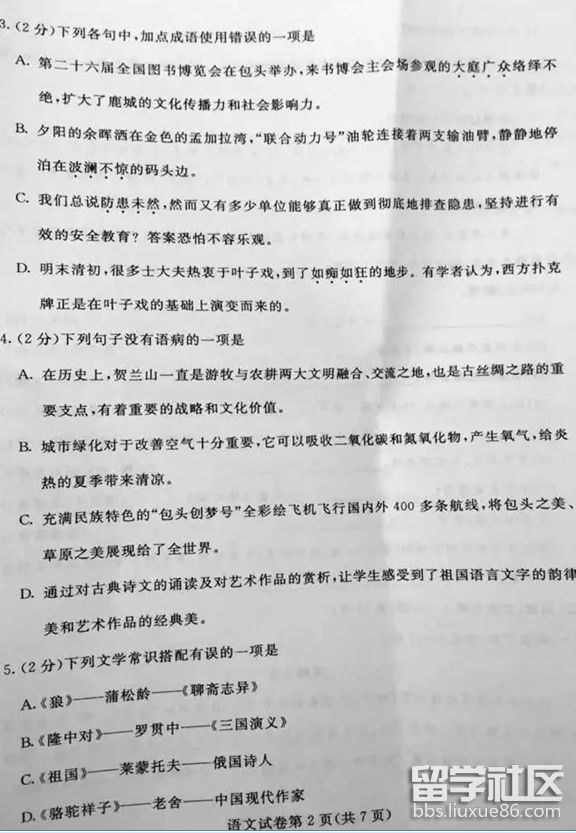 3.(2分)下列各句中,加点成语使用错误的一项是
A. 第二十六届全国图书博览会在包头举办,来书博会主会场参观的大庭广众络绎不
绝,扩大了鹿城的文化传播力和社会影响力。
B. 夕阳的余晖洒在金色的孟加拉湾,“联合动力号”油轮连接着两支输油臂,静静地停
泊在波澜不惊的码头边。
C. 我们总说防患未然,然而又有多少单位能够真正做到彻底地排查隐患,坚持进行有
效的安全教育? 答案恐怕不容乐观。
D. 明末清初,很多士大夫热衷于叶子戏,到了如痴如狂的地步。有学者认为,西方扑克
牌正是在叶子戏的基础上演变而来的。
4.(2分)下列句子没有语病的一项是
A. 在历史上,贺兰山一直是游牧与农耕两大文明融合、交流之地,也是古丝绸之路的重
要支点,有着重要的战略和文化价值。
B. 城市绿化对于改善空气十分重要,它可以吸收二氧化碳和氮氧化物,产生氧气,给炎
热的夏季带来清凉。
C. 充满民族特色的“包头创梦号”全彩绘飞机飞行国内外 400 多条航线,将包头之美、
草原之美展现给了全世界。
D. 通过对古典诗文的诵读及对艺术作品的赏析,让学生感受到了祖国语言文字的韵律
美和艺术作品的经典美。
5.(2分)下列文学常识搭配有误的一项是
A.《狼》——蒲松龄——《聊斋志异》
B.《隆中对》——罗贯中——《三国演义》
C.《祖国》——莱蒙托夫——俄国诗人
D.《骆驼祥子》——老舍——中国现代作家
语文试卷第 2 页(共 7 页)
留学社区
bbs.liuxue86.com